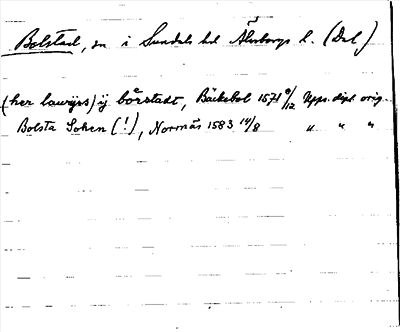 Bolstad, sn i Sundals hd Älvsborgs l. (Dal)
(her lauryss) ij boͤrstadt, Bäckebol 1571 9/12 Upps. dipl. orig.
Bolsta Soken (!), Normås 1583 14/8 " " "